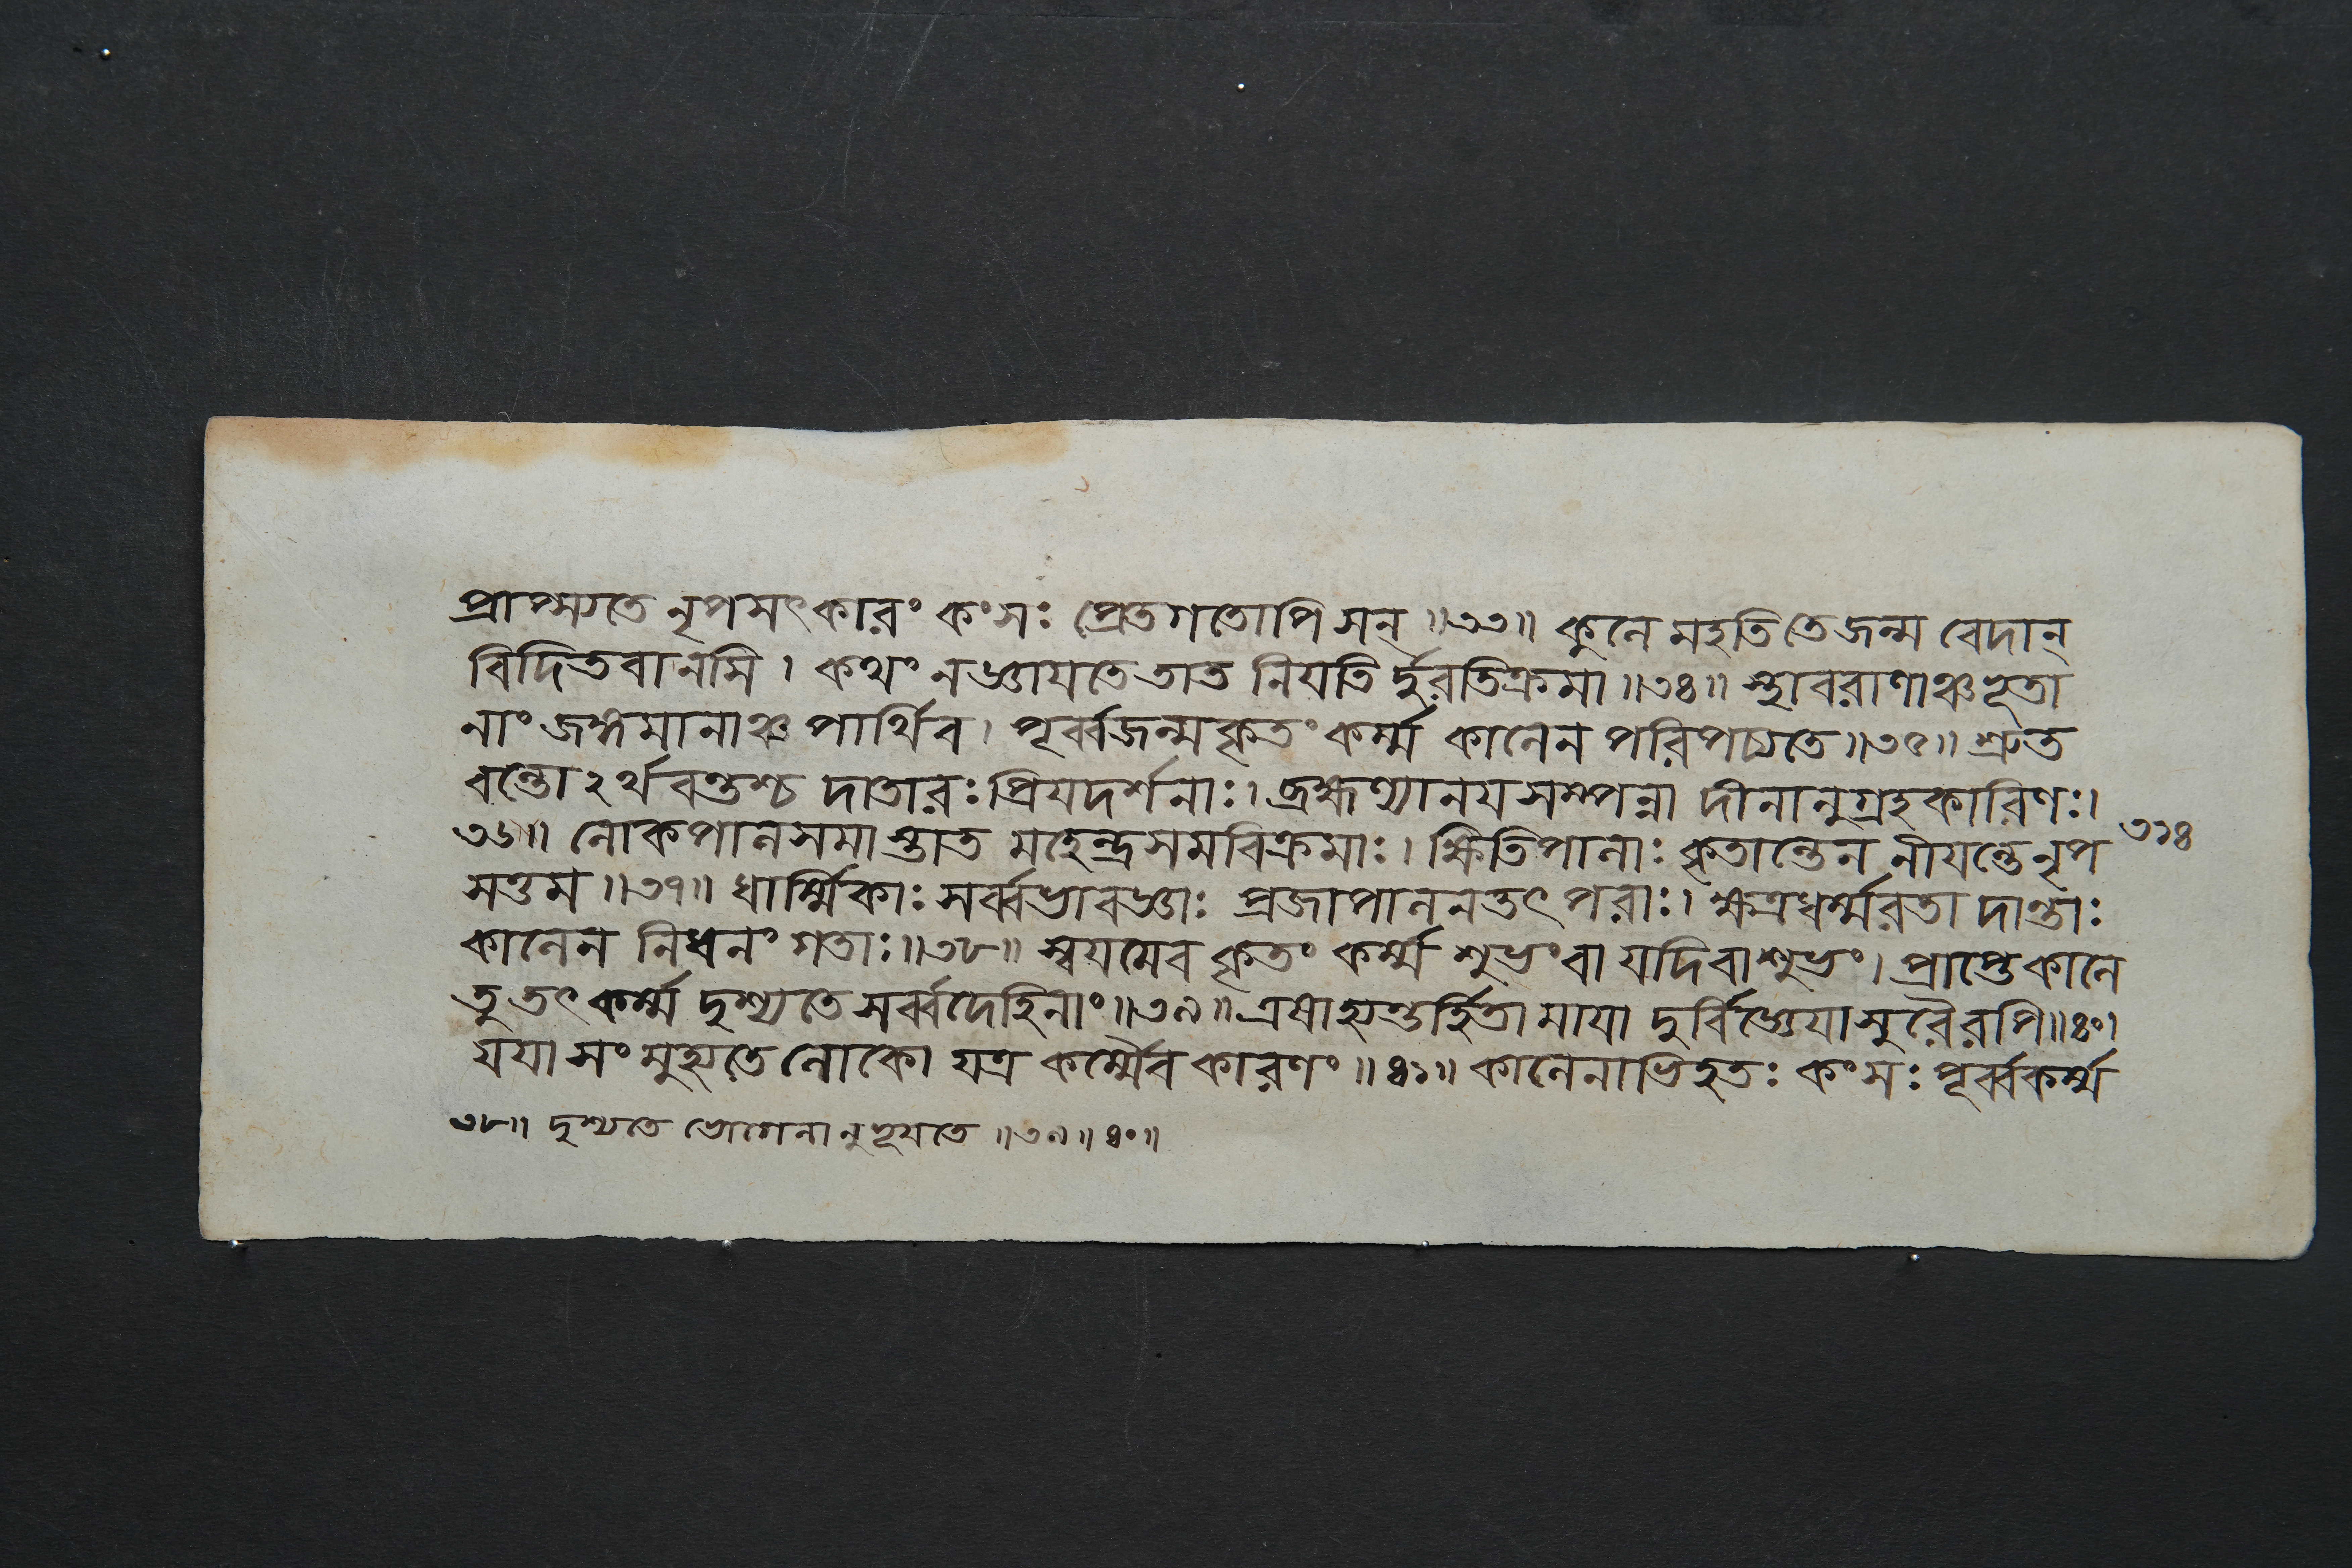 প্রাপ্স্যতে নৃপসৎকারং কংসঃ প্রেতগতোপি সন্ ॥৩৩॥ কুলে মহতি তে জন্ম বেদান্
বিদিতবানসি । কথং নজ্ঞায়তে তাত নিয়তি র্দুরতিক্রমা ॥৩৪॥ স্থাবরাণাঞ্চ ভূতা
নাং জঙ্গমানাঞ্চ পার্থিব । পূর্ব্বজন্মকৃতং কর্ম্ম কালেন পরিপচ্যতে ॥৩৫॥ শ্রুত
বন্তোঽর্থবন্তশ্চ দাতারঃ প্রিয়দর্শনাঃ । ব্রহ্মণ্যানয়সম্পন্না দীনানুগ্রহকারিণঃ ।
৩৬॥ লোকপালসমাস্তাত মহেন্দ্রসমবিক্রমাঃ । ক্ষিতিপালাঃ কৃতান্তেন নীয়ন্তে নৃপ
৩১৪
সত্তম ॥৩৭॥ ধার্ম্মিকাঃ সর্ব্বভাবজ্ঞাঃ প্রজাপালনতৎপরাঃ । ক্ষত্রধর্ম্মরতা দান্তাঃ
কালেন নিধনং গতাঃ ॥৩৮॥ স্বয়মেব কৃতং কর্ম্ম শুভং বা যদি বাশুভং । প্রাপ্তে কালে
তু তৎ কর্ম্ম দৃশ্যতে সর্ব্বদেহিনাং ॥৩৯॥ এষাহ্যন্তর্হিতা মায়া দুর্বিজ্ঞেয়া সুরৈরপি ॥৪০।
যয়া সংমুহ্যতে লোকো যত্র কর্ম্মৈব কারণং ॥৪১॥ কালেনাভিহতঃ কংসঃ পূর্ব্বকর্ম্ম
৩৮॥ দৃশ্যতে ভোগেনানুভূয়তে ॥৩৯॥৪০॥